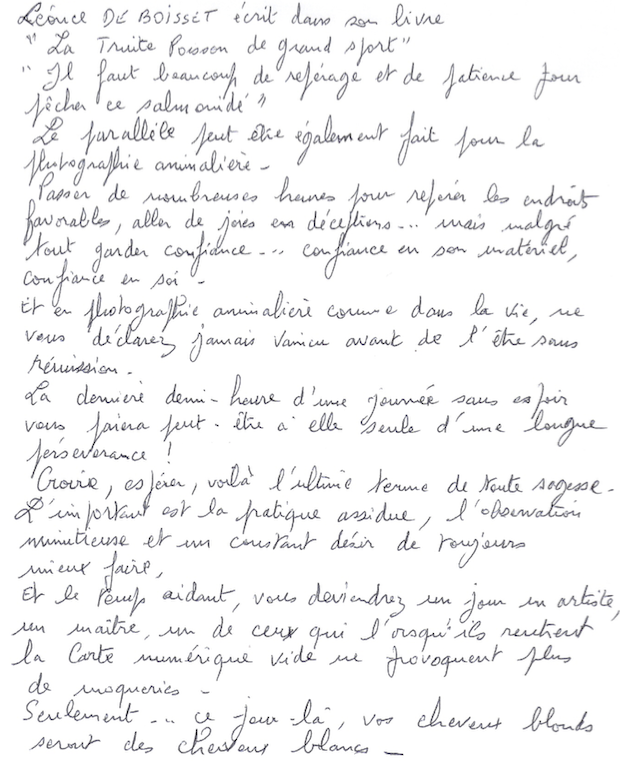 Léonce DE BOISSET écrit dans son livre
"La Truite Poisson de grand sport"
"Il faut beaucoup de repérage et de patience pour
pêcher ce salmonidé"
Le parallèle peut être également fait pour la
photographie animalière -
Passer de nombreuses heures pour repérer les endroits
favorables, aller de joies en déceptions... mais malgré
tout garder confiance... confiance en son matériel,
confiance en soi -
Et en photographie animalière comme dans la vie, ne
vous déclarez jamais vaincu avant de l'être sans
rémission.
La dernière demi-heure d'une journée sans espoir
vous paiera peut-être à elle seule d'une longue
perséverance !
Croire, espérer, voilà l'ultime terme de toute sagesse -
L'important est la pratique assidue, l'observation
minutieuse et un constant désir de toujours
mieux faire,
Et le temps aidant, vous deviendrez un jour un artiste,
un maître, un de ceux qui l'orsqu'ils rentrent
la Carte numérique vide ne provoquent plus
de moqueries -
Seulement... ce jour-là, vos cheveux blonds
seront des cheveux blancs -